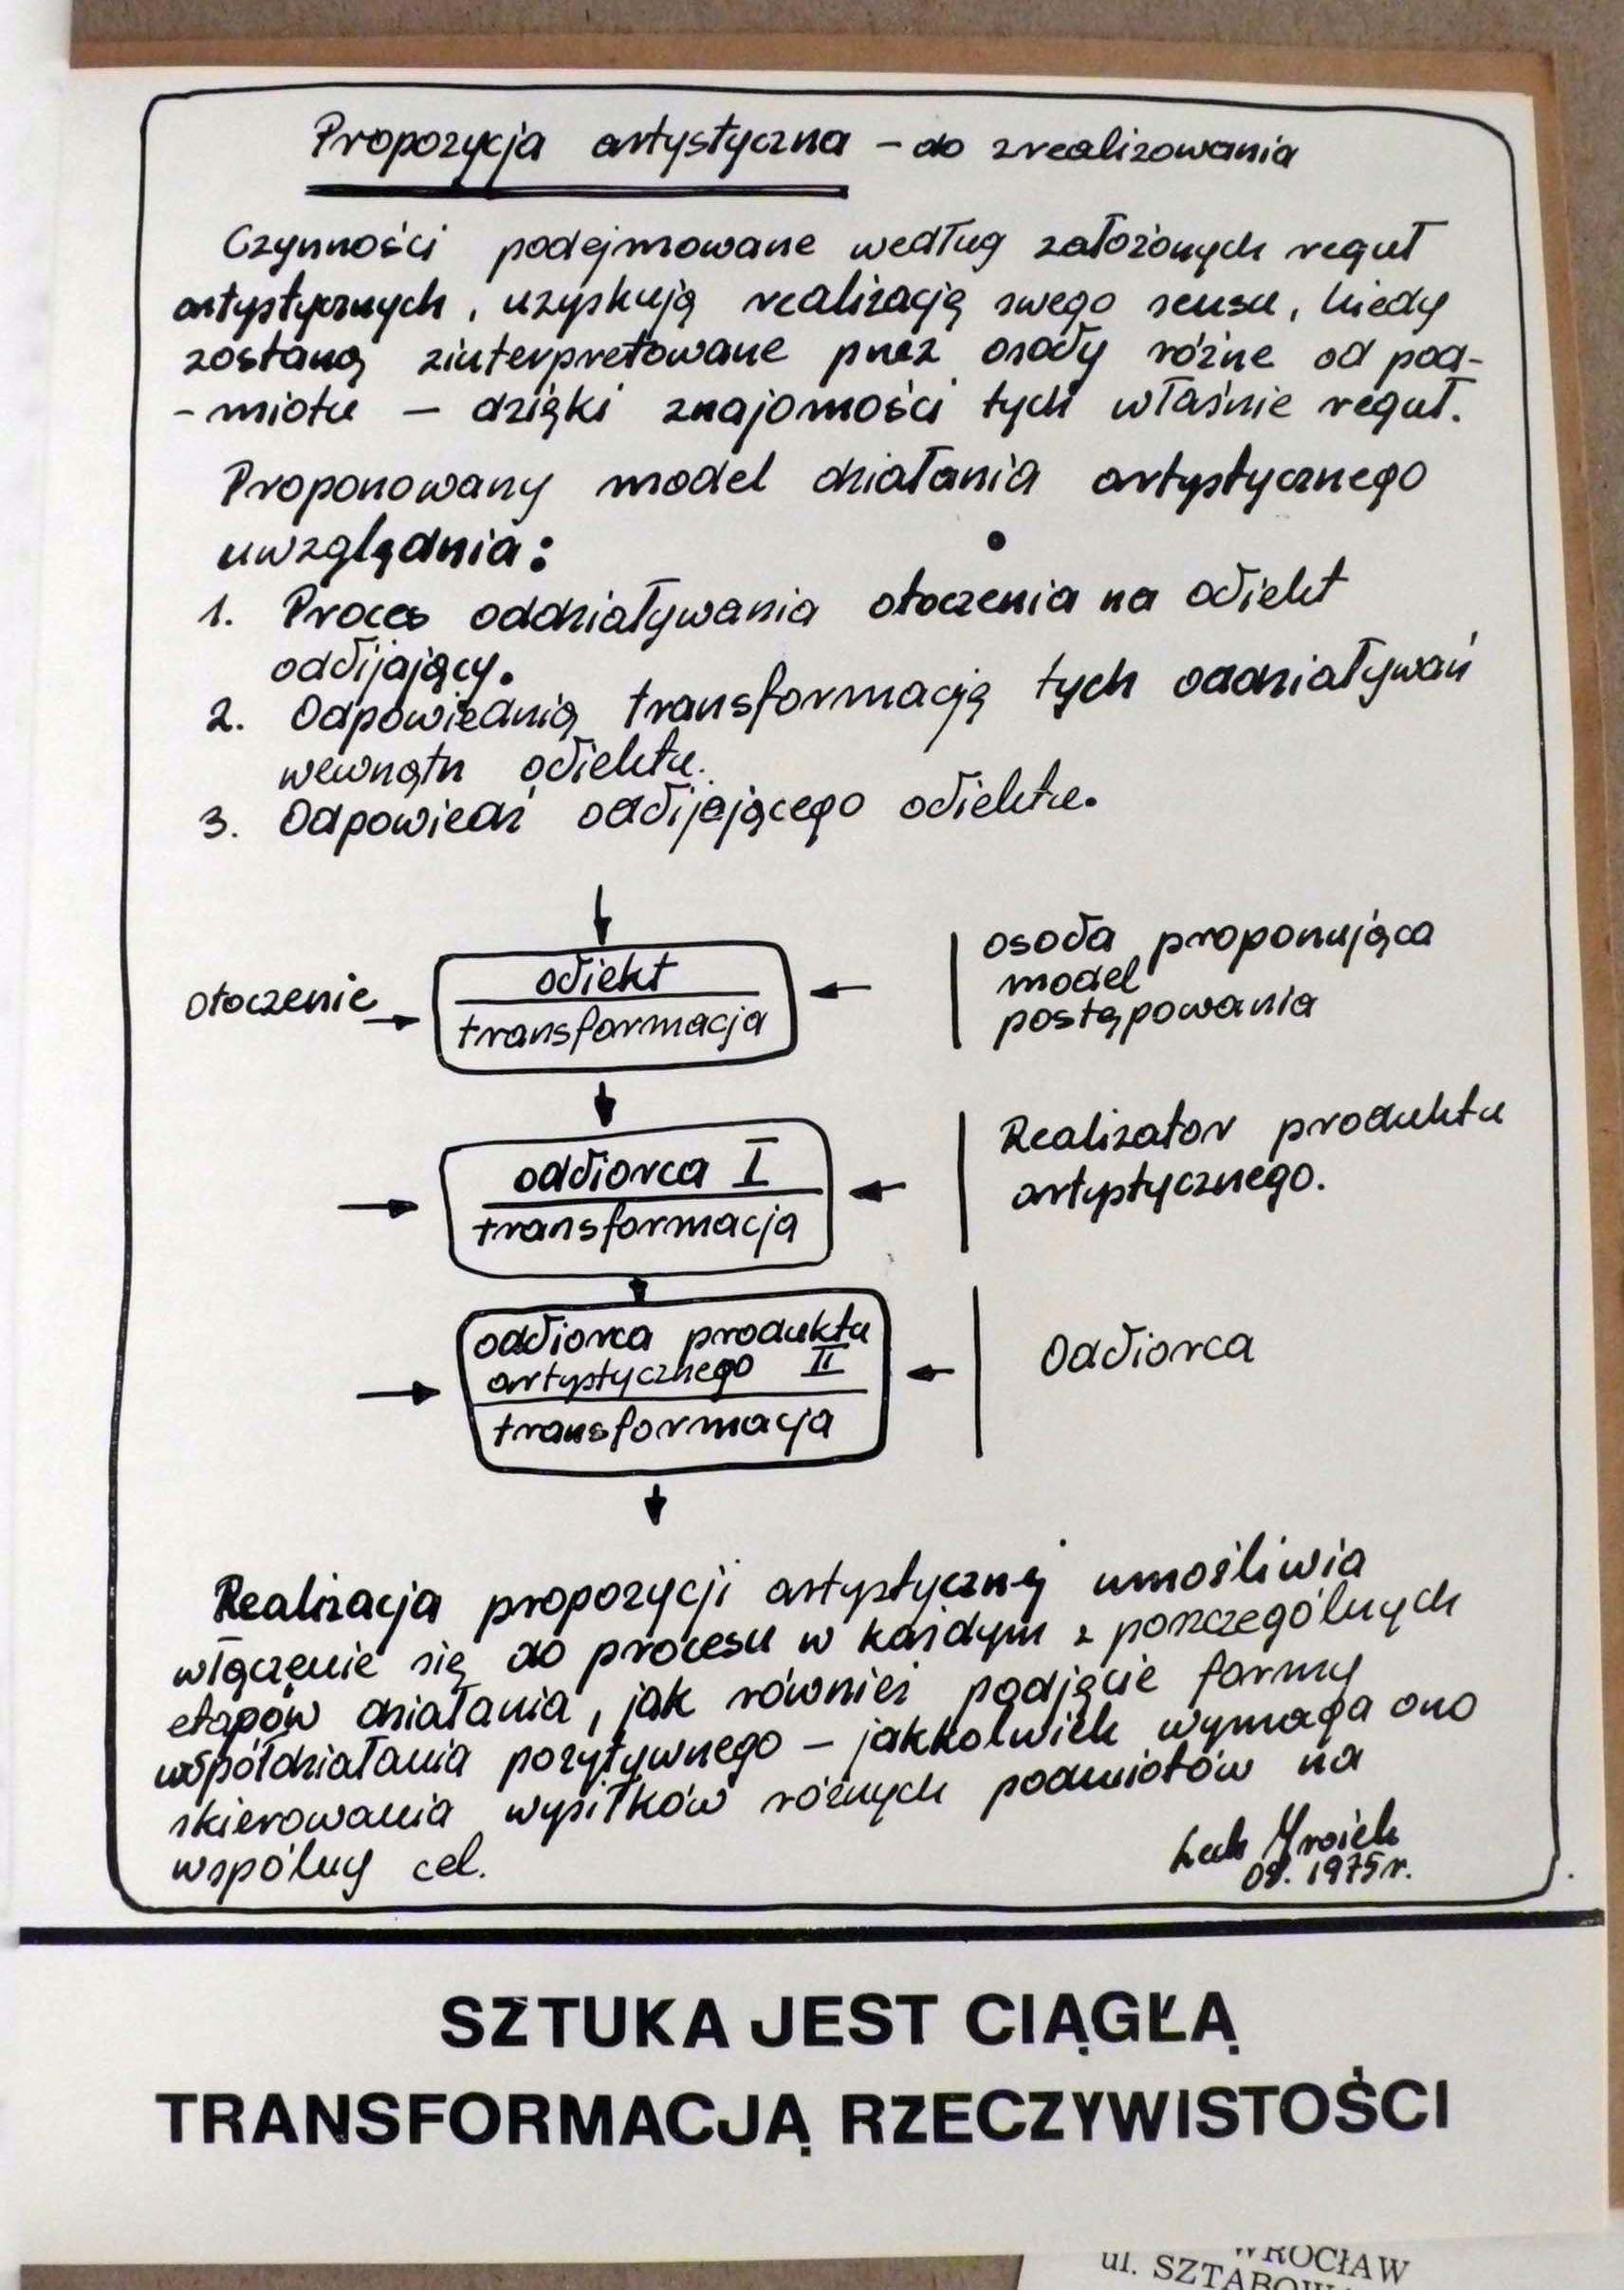 Propozycja artystyczna – do zrealizowania
Czynności podejmowane według założonych reguł
artystycznych, uzyskują realizację swego sensu, kiedy
zostaną zinterpretowane przez osoby różne od pod-
-miotu – dzięki znajomości tych właśnie reguł.
Proponowany model działania artystycznego
uwzględnia:
1. Proces oddziaływania otoczenia na obiekt
odbijający.
2. Odpowiednią transformację tych oddziaływań
wewnątrz obiektu.
3. Odpowiedź odbijającego obiektu.
otoczenie
obiekt
transformacja
osoba proponująca
model
postępowania
odbiorca I
transformacja
Realizator produktu
artystycznego.
odbiorca produktu
artystycznego II
transformacja
Odbiorca
Realizacja propozycji artystycznej umożliwia
włączenie się do procesu w każdym z poszczególnych
etapów działania, jak również podjęcie formy
współdziałania pozytywnego – jakkolwiek wymaga ono
skierowania wysiłków różnych podmiotów na
wspólny cel.
Lech Mrożek
09. 1975 r.
SZTUKA JEST CIĄGŁĄ
TRANSFORMACJĄ RZECZYWISTOŚCI
WROCŁAW
ul.